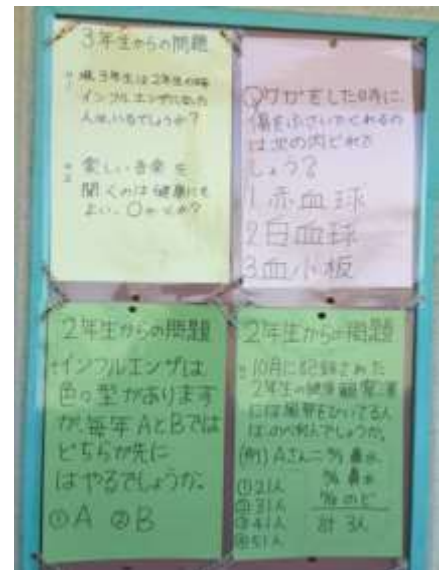 3年生からの問題
現3年生は2年生の時
インフルエンザになった
人はいるでしょうか？
楽しい音楽を
聞くのは健康にも
よい。○か×か？
Qケガをした時に、
傷をふさいでくれるの
は次の内どれで
しょう？
1赤血球
2白血球
3血小板
2年生からの問題
インフルエンザは
色々型があります
が、毎年AとBでは
どちらが先に
はやるでしょうか。
①A ②B
2年生からの問題
10月に記録された
2年生の健康観察簿
には風邪をひいてる人
は、のべ何人でしょうか。
(例)Aさん=
鼻水
鼻水
のど
計 3人
①21人
②31人
③41人
④51人